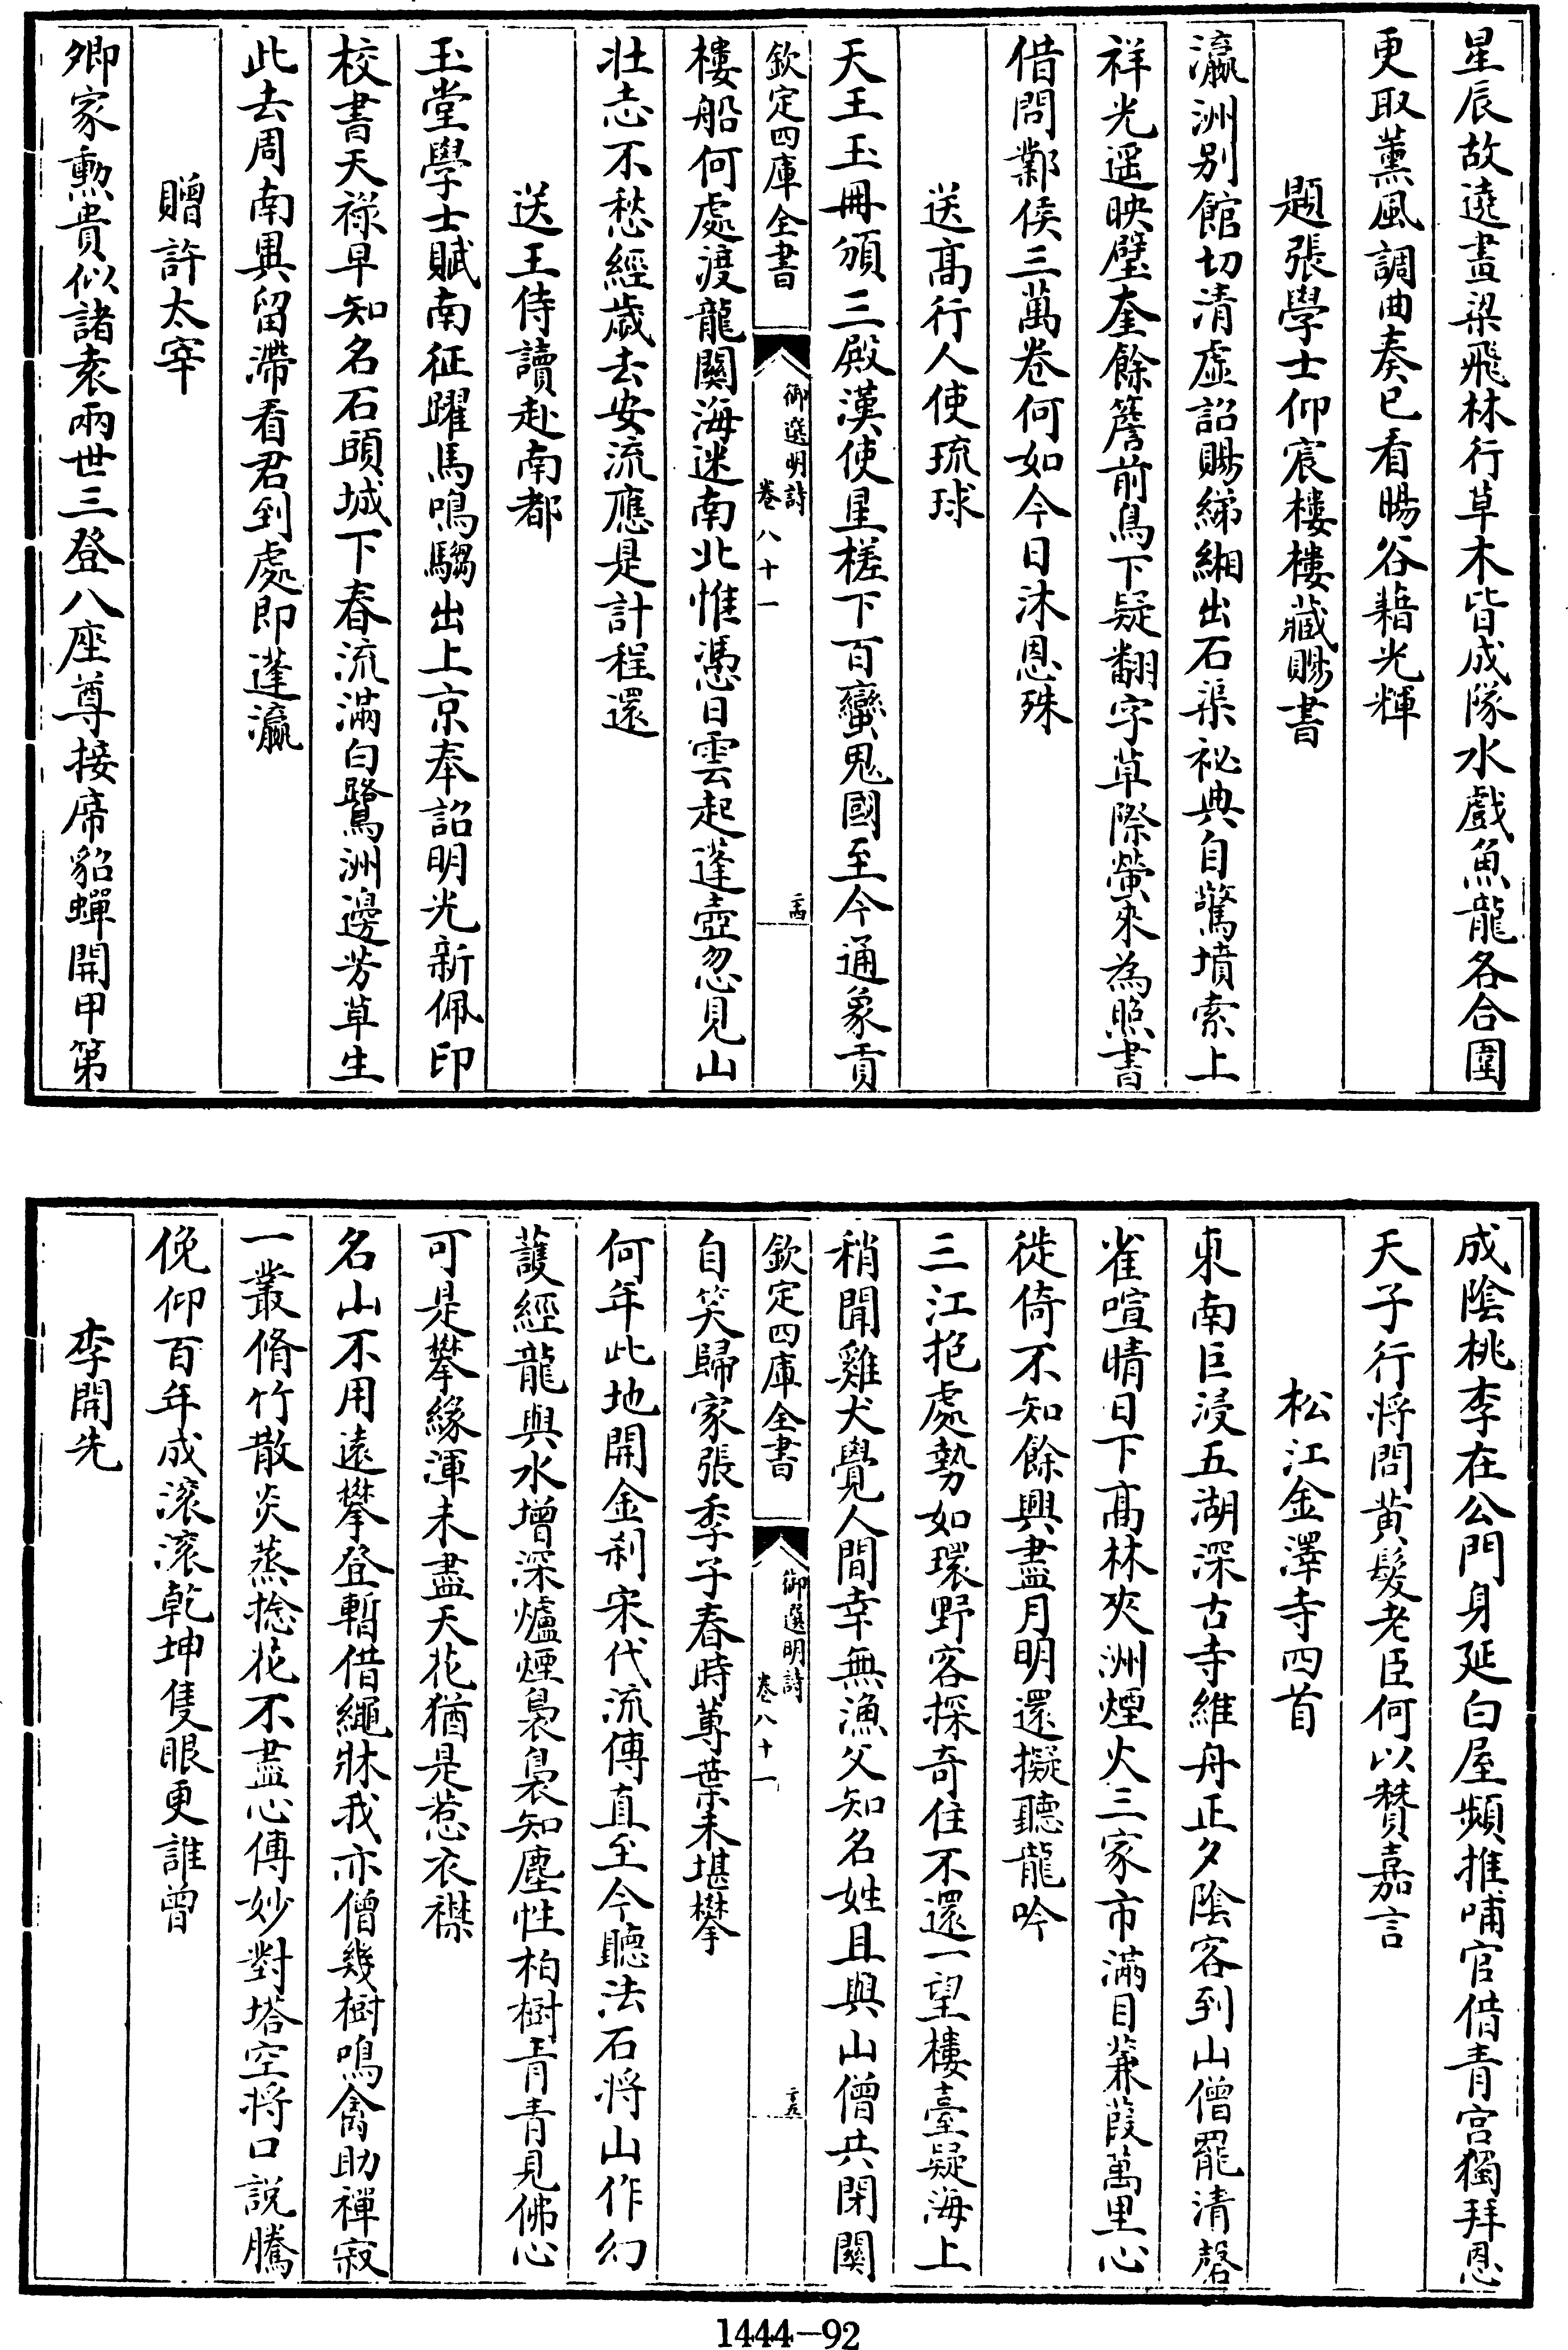 星辰故遶畫梁飛林行草木皆成隊水戲魚龍各合圍
更取薰風調曲奏已看暘谷藉光輝
題張學士仰宸樓樓藏賜書
瀛洲别館切清虛詔賜綈緗出石渠祕典自驚墳索上
祥光遥映璧奎餘簷前鳥下疑翻字草際螢來為照書
借問鄴侯三萬卷何如今日沐恩殊
送髙行人使琉球
天王玉冊頒三殿漢使星槎下百蠻鬼國至今通象貢
欽定四庫全書
御選明詩
卷八十一
樓船何處渡龍關海迷南北惟憑日雲起蓬壺忽見山
壯志不愁經歲去安流應是計程還
送王侍讀赴南都
玉堂學士賦南征躍馬鳴騶出上京奉詔明光新佩印
校書天祿早知名石頭城下春流滿白鷺洲邊芳草生
此去周南異留滯看君到處即蓬瀛
贈許太宰
卿家勲貴似諸袁兩世三登八座尊接席貂蟬開甲第
成陰桃李在公門身延白屋頻推哺官借青宫獨拜恩
天子行将問黄髮老臣何以贊嘉言
松江金澤寺四首
東南巨浸五湖深古寺維舟正夕陰客到山僧罷清磬
雀喧晴日下髙林夾洲煙火三家市滿目蒹葭萬里心
徙倚不知餘興盡月明還擬聽龍吟
三江抱處勢如環野客探奇住不還一望樓臺疑海上
稍聞雞犬覺人間幸無漁父知名姓且與山僧共閉關
欽定四庫全書
御選明詩
卷八十一
自笑歸家張季子春時蓴葉未堪攀
何年此地開金刹宋代流傳直至今聽法石将山作幻
護經龍與水增深爐煙裊裊知塵性柏樹青青見佛心
可是攀緣渾未盡天花猶是惹衣襟
名山不用遠攀登暫借繩牀我亦僧幾樹鳴禽助禪寂
一叢脩竹散炎蒸捻花不盡心傳妙對塔空将口説騰
俛仰百年成滚滚乾坤隻眼更誰曾
李開先
1444-92